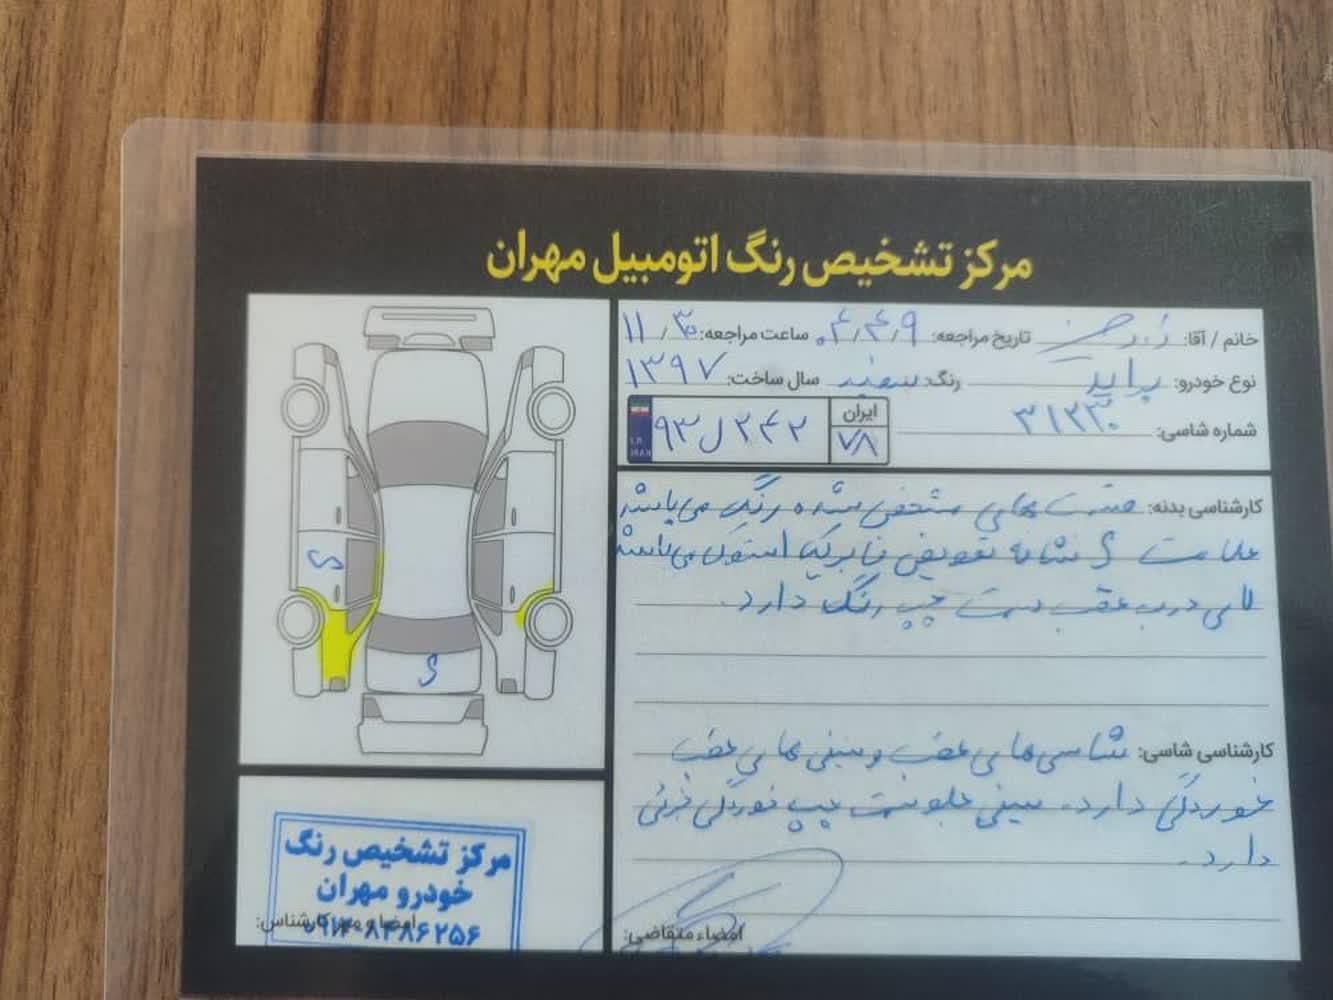 مرکز تشخیص رنگ اتومبیل مهران
خانم / آقا: تاریخ مراجعه: ۰۴/۴/۹ ساعت مراجعه: ۱۱/۳۰
نوع خودرو: پراید رنگ: سفید سال ساخت: ۱۳۹۷
شماره شاسی: ۳۱۲۳۰
ایران ۷۸ ۹۳ ل ۲۴۲
I.R.
IRAN
کارشناسی بدنه: قسمت های مشخص شده رنگ می باشد
علامت S نشانه تعویض فابریک استوک می باشد
لای درب عقب سمت چپ رنگ دارد.
S
S
کارشناسی شاسی: شاسی های عقب و سینی های عقب
خوردگی دارد. سینی جلو سمت چپ خوردگی جزئی
دارد.
مرکز تشخیص رنگ
خودرو مهران
امضا و مهر کارشناس:
امضاء متقاضی: